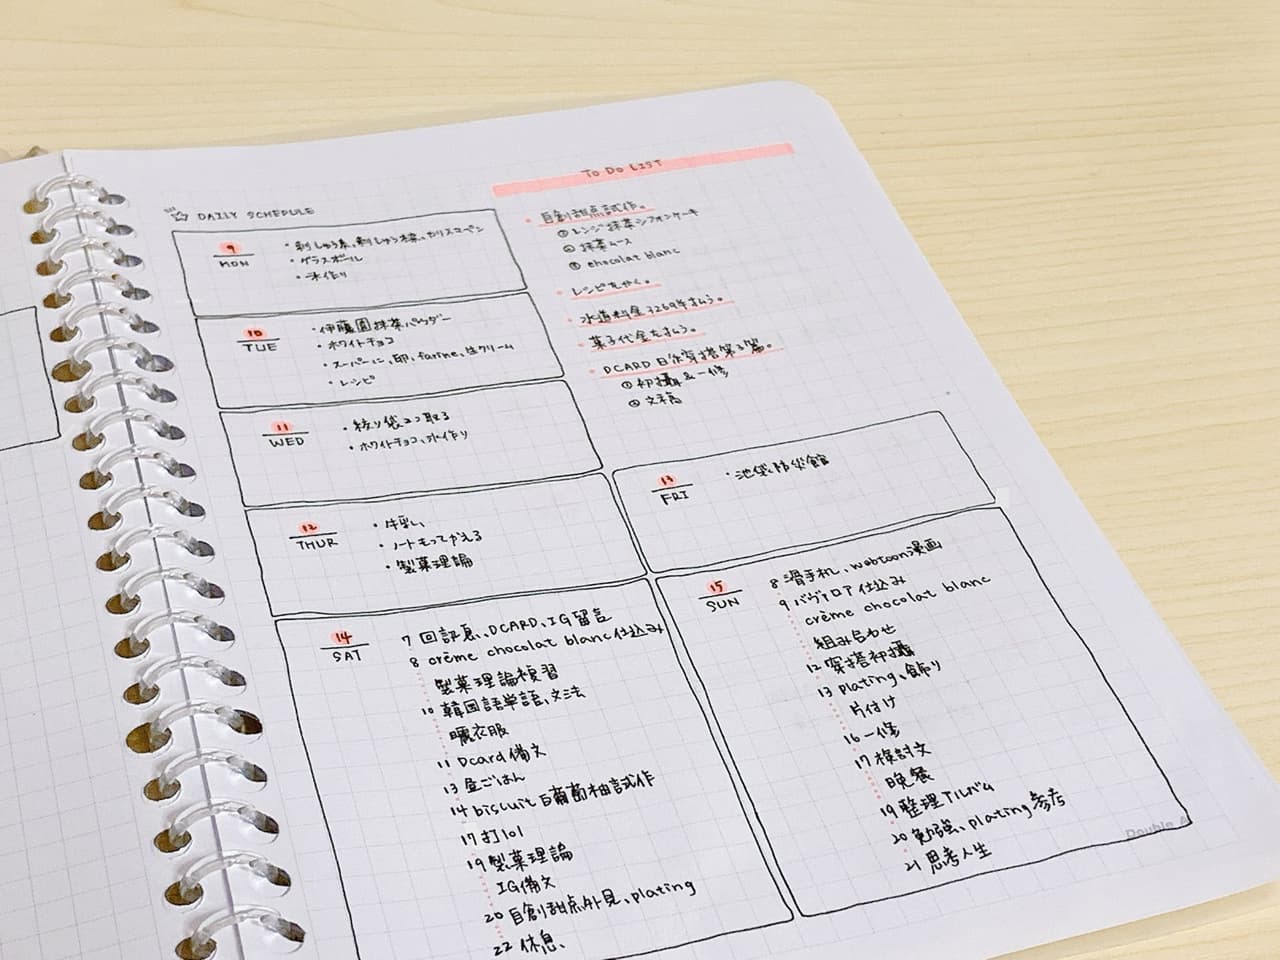 DAILY SCHEDULE
9
MON
・刺しゅう糸、刺しゅう枠、カリスマペン
・グラスボール
・氷作り
10
TUE
・伊藤園抹茶パウダー
・ホワイトチョコ
・スーパーに、卵、farine、生クリーム
・レシピ
11
WED
・絞り袋コツ取る
・ホワイトチョコ、氷作り
12
THUR
・牛乳
・ノートもってかえる
・製菓理論
14
SAT
7 回訊息、DCARD、IG留言
8 crème chocolat blanc仕込み
製菓理論複習
10 韓国語単語、文法
曬衣服
11 Dcard備文
13 昼ごはん
14 biscuit 白葡萄柚試作
17 打101
19 製菓理論
IG備文
20 自創甜点外見、plating
22 休息、
TO DO LIST
自創甜点試作。
① レンジ抹茶シフォンケーキ
② 抹茶ムース
③ chocolat blanc
レシピをかく。
水道料金3269年払う。
菓子代金を払う。
DCARD 日系穿搭第3篇。
① 初攝&一修
② 文稿
13
FRI
・池袋、防災館
15
SUN
8 滑手机、webtoon漫画
9 バヴァロア仕込み
crème chocolat blanc
組み合わせ
12 穿搭初攝
13 plating、飾り
片付け
16 一修
17 検討文
晩餐
19 整理アルバム
20 勉強、plating参考
21 思考人生
Double A